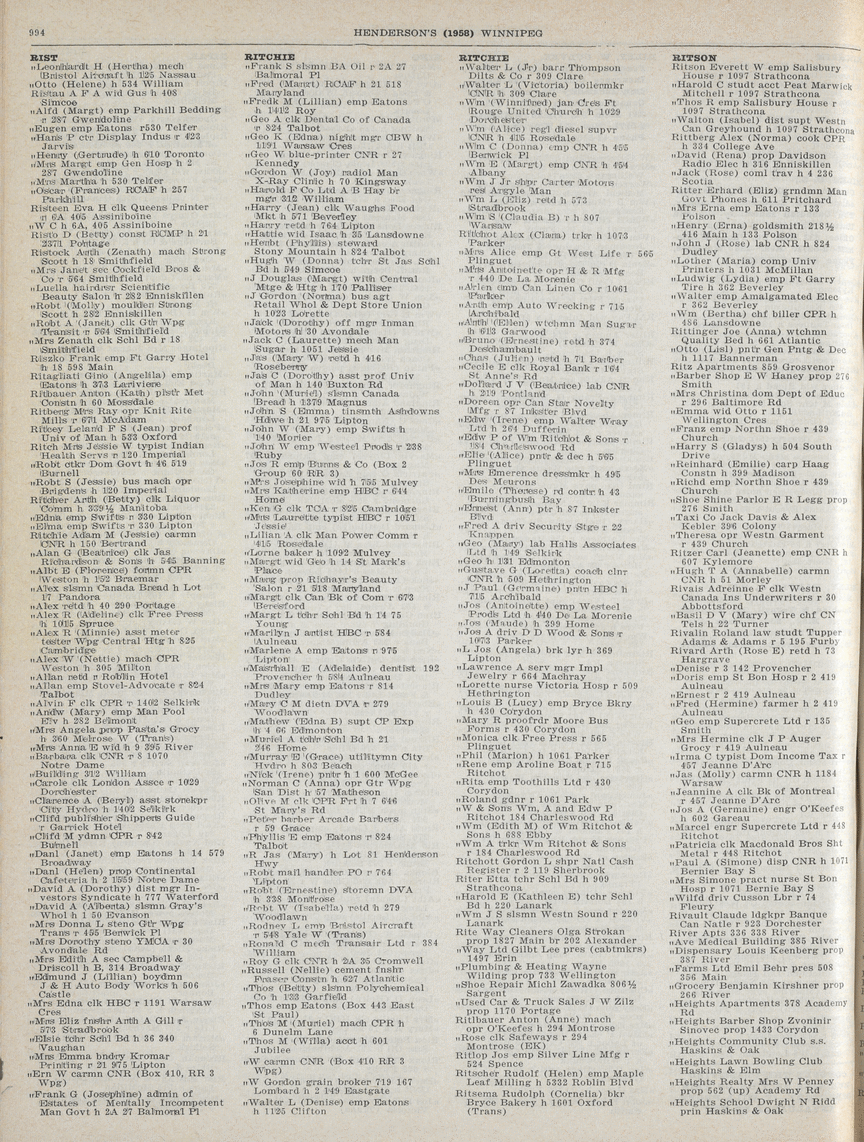 994
HENDERSON'S (1958) WINNIPEG
RIST
„Leonhardt H (Hertha) mech
Bristol Aircraft h 1125 Nassau
„Otto (Helene) h 534 William
Ristau A F A wid Gus h 408
Simcoe
„Alfd (Margt) emp Parkhill Bedding
r 287 Gwendoline
„Eugen emp Eatons r530 Telfer
„Hans F ctr Display Indus r 423
Jarvis
„Henry (Gertrude) h 610 Toronto
„Mrs Margt emp Gen Hosp h 2
287 Gwendoline
„Mrs Martha h 530 Telfer
„Oscar (Frances) RCAF h 257
Parkhill
Risteen Eva H clk Queens Printer
r 6A 405 Assiniboine
„W C h 6A, 405 Assiniboine
Risto D (Betty) const RCMP h 21
2371 Portage
Ristock Arth (Zenath) mach Strong
Scott h 18 Smithfield
„Mrs Janet sec Cockfield Bros &
Co r 564 Smithfield
„Luella hairdrsr Scientific
Beauty Salon h 282 Enniskillen
„Robt (Molly) moulder Strong
Scott h 282 Enniskillen
„Robt A (Janet) clk Gtr Wpg
Transit r 564 Smithfield
„Mrs Zenath clk Schl Bd r 18
Smithfield
Riszko Frank emp Ft Garry Hotel
h 18 598 Main
Ritagliati Gino (Angelila) emp
Eatons h 373 Lariviere
Ritbauer Anton (Kath) plstr Met
Constn h 60 Mossdale
Ritberg Mrs Ray opr Knit Rite
Mills r 671 McAdam
Ritcey Leland F S (Jean) prof
Univ of Man h 533 Oxford
Ritch Mrs Jessie W typist Indian
Health Servs r 120 Imperial
„Robt ctkr Dom Govt h 46 519
Burnell
„Robt S (Jessie) bus mach opr
Brigdens h 120 Imperial
Ritcher Arth (Betty) clk Liquor
Comm h 339½ Manitoba
„Edna emp Swifts r 330 Lipton
„Elma emp Swifts r 330 Lipton
Ritchie Adam M (Jessie) carmn
CNR h 150 Bertrand
„Alan G (Beatrice) clk Jas
Richardson & Sons h 545 Banning
„Albt E (Florence) formn CPR
Weston h 152 Braemar
„Alex slsmn Canada Bread h Lot
17 Pandora
„Alex retd h 40 290 Portage
„Alex R (Adeline) clk Free Press
h 1015 Spruce
„Alex R (Minnie) asst meter
tester Wpg Central Htg h 825
Cambridge
„Alex W (Nettie) mach CPR
Weston h 305 Milton
„Allan retd r Roblin Hotel
„Allan emp Stovel-Advocate r 824
Talbot
„Alvin F clk CPR r 1402 Selkirk
„Andw (Mary) emp Man Pool
Elv h 282 Belmont
„Mrs Angela prop Pasta's Grocy
h 360 Melrose W (Trans)
„Mrs Anna E wid h 9 395 River
„Barbara clk CNR r 8 1070
Notre Dame
„Building 312 William
„Carole clk London Assce r 1029
Dorchester
„Clarence A (Beryl) asst storekpr
City Hydro h 1402 Selkirk
„Clifd publisher Shippers Guide
r Garrick Hotel
„Clifd M ydmn CPR r 842
Burnell
„Danl (Janet) emp Eatons h 14 579
Broadway
„Danl (Helen) prop Continental
Cafeteria h 2 1559 Notre Dame
„David A (Dorothy) dist mgr In-
vestors Syndicate h 777 Waterford
„David A (Alberta) slsmn Gray's
Whol h 1 50 Evanson
„Mrs Donna L steno Gtr Wpg
Trans r 455 Berwick Pl
„Mrs Dorothy steno YMCA r 30
Avondale Rd
„Mrs Edith A sec Campbell &
Driscoll h B, 314 Broadway
„Edmund J (Lillian) boydmn
J & H Auto Body Works h 506
Castle
„Mrs Edna clk HBC r 1191 Warsaw
Cres
„Mrs Eliz fnshr Arth A Gill r
573 Stradbrook
„Elsie tchr Schl Bd h 36 340
Vaughan
„Mrs Emma bndry Kromar
Printing r 21 975 Lipton
„Ern W carmn CNR (Box 410, RR 3
Wpg)
„Frank G (Josephine) admin of
Estates of Mentally Incompetent
Man Govt h 2A 27 Balmoral Pl
RITCHIE
„Frank S slsmn BA Oil r 2A 27
Balmoral Pl
„Fred (Margt) RCAF h 21 518
Maryland
„Fredk M (Lillian) emp Eatons
h 1412 Roy
„Geo A clk Dental Co of Canada
r 824 Talbot
„Geo K (Edna) night mgr CBW h
1191 Warsaw Cres
„Geo W blue-printer CNR r 27
Kennedy
„Gordon W (Joy) radiol Man
X-Ray Clinic h 70 Kingsway
„Harold F Co Ltd A B Hay br
mgr 312 William
„Harry (Jean) clk Waughs Food
Mkt h 571 Beverley
„Harry retd h 764 Lipton
„Hattie wid Isaac h 35 Lansdowne
„Herbt (Phyllis) steward
Stony Mountain h 824 Talbot
„Hugh W (Donna) tchr St Jas Schl
Bd h 549 Simcoe
„J Douglas (Margt) with Central
Mtge & Htg h 170 Palliser
„J Gordon (Norma) bus agt
Retail Whol & Dept Store Union
h 1023 Lorette
„Jack (Dorothy) off mgr Inman
Motors h 30 Avondale
„Jack C (Laurette) mech Man
Sugar h 1051 Jessie
„Jas (Mary W) retd h 416
Roseberry
„Jas C (Dorothy) asst prof Univ
of Man h 140 Buxton Rd
„John (Muriel) slsmn Canada
Bread h 1379 Magnus
„John S (Emma) tinsmth Ashdowns
Hdwe h 21 975 Lipton
„John W (Mary) emp Swifts h
140 Morier
„John W emp Westeel Prods r 238
Ruby
„Jos R emp Burns & Co (Box 2
Group 60 RR 3)
„Mrs Josephine wid h 755 Mulvey
„Mrs Katherine emp HBC r 644
Home
„Ken G clk TCA r 825 Cambridge
„Mrs Laurette typist HBC r 1051
Jessie
„Lilian A clk Man Power Comm r
415 Rosedale
„Lorne baker h 1092 Mulvey
„Margt wid Geo h 14 St Mark's
Place
„Marg prop Richayr's Beauty
Salon r 21 518 Maryland
„Margt clk Can Bk of Com r 673
Beresford
„Margt L tchr Schl Bd h 14 75
Young
„Marilyn J artist HBC r 584
Aulneau
„Marlene A emp Eatons r 975
Lipton
„Marshall E (Adelaide) dentist 192
Provencher h 584 Aulneau
„Mrs Mary emp Eatons r 814
Dudley
„Mary C M dietn DVA r 279
Woodlawn
„Mathew (Edna B) supt CP Exp
h 4 66 Edmonton
„Muriel A tchr Schl Bd h 21
246 Home
„Murray E (Grace) utilitymn City
Hydro h 803 Beach
„Nick (Irene) pntr h 1 600 McGee
„Norman C (Anna) opr Gtr Wpg
San Dist h 57 Matheson
„Olive M clk CPR Frt h 7 646
St Mary's Rd
„Peter barber Arcade Barbers
r 59 Grace
„Phyllis E emp Eatons r 824
Talbot
„R Jas (Mary) h Lot 81 Henderson
Hwy
„Robt mail handler PO r 764
Lipton
„Robt (Ernestine) storemn DVA
h 338 Montrose
„Robt W (Isabella) retd h 279
Woodlawn
„Rodney L emp Bristol Aircraft
r 548 Yale W (Trans)
„Ronald C mech Transair Ltd r 384
William
„Roy G clk CNR h 2A 35 Cromwell
„Russell (Nellie) cement fnshr
Fraser Constn h 627 Atlantic
„Thos (Betty) slsmn Polychemical
Co h 133 Garfield
„Thos emp Eatons (Box 443 East
St Paul)
„Thos M (Muriel) mach CPR h
6 Dunelm Lane
„Thos M (Willa) acct h 601
Jubilee
„W carmn CNR (Box 410 RR 3
Wpg)
„W Gordon grain broker 719 167
Lombard h 2 149 Eastgate
„Walter L (Denise) emp Eatons
h 1125 Clifton
RITCHIE
„Walter L (Jr) barr Thompson
Dilts & Co r 309 Clare
„Walter L (Victoria) boilermkr
CNR h 309 Clare
„Wm (Winnifred) jan Cres Ft
Rouge United Church h 1029
Dorchester
„Wm (Alice) regl diesel supvr
CNR h 415 Rosedale
„Wm C (Donna) emp CNR h 455
Berwick Pl
„Wm E (Margt) emp CNR h 454
Albany
„Wm J Jr shpr Carter Motors
res Argyle Man
„Wm L (Eliz) retd h 573
Stradbrook
„Wm S (Claudia B) r h 807
Warsaw
Ritchot Alex (Clara) trkr h 1073
Parker
„Mrs Alice emp Gt West Life r 565
Plinguet
„Mrs Antoinette opr H & R Mfg
r 440 De La Morenie
„Arlen emp Can Linen Co r 1061
Parker
„Arth emp Auto Wrecking r 715
Archibald
„Arth (Ellen) wtchmn Man Sugar
h 613 Garwood
„Bruno (Ernestine) retd h 374
Deschambault
„Chas (Julien) retd h 71 Barber
„Cecile E clk Royal Bank r 164
St Anne's Rd
„Dollard J V (Beatrice) lab CNR
h 219 Portland
„Doreen opr Can Star Novelty
Mfg r 87 Inkster Blvd
„Edw (Irene) emp Walter Wray
Ltd h 264 Dufferin
„Edw P of Wm Ritchot & Sons r
184 Charleswood Rd
„Elie (Alice) pntr & dec h 565
Plinguet
„Mrs Emerence dressmkr h 495
Des Meurons
„Emile (Therese) rd contr h 43
Burningbush Bay
„Ernest (Ann) ptr h 87 Inkster
Blvd
„Fred A driv Security Stge r 22
Knappen
„Geo (Mary) lab Halls Associates
Ltd h 149 Selkirk
„Geo h 131 Edmonton
„Gustave G (Loretta) coach clnr
CNR h 509 Hethrington
„J Paul (Germaine) pntr HBC h
715 Archibald
„Jos (Antoinette) emp Westeel
Prods Ltd h 440 De La Morenie
„Jos (Maude) h 399 Home
„Jos A driv D D Wood & Sons r
1073 Parker
„L Jos (Angela) brk lyr h 369
Lipton
„Lawrence A serv mgr Impl
Jewelry r 664 Machray
„Lorette nurse Victoria Hosp r 509
Hethrington
„Louis B (Lucy) emp Bryce Bkry
h 430 Corydon
„Mary R proofrdr Moore Bus
Forms r 430 Corydon
„Monica clk Free Press r 565
Plinguet
„Phil (Marion) h 1061 Parker
„Rene emp Aroline Boat r 715
Ritchot
„Rita emp Toothills Ltd r 430
Corydon
„Roland gdnr r 1061 Park
„W & Sons Wm, A and Edw P
Ritchot 184 Charleswood Rd
„Wm (Edith M) of Wm Ritchot &
Sons h 688 Ebby
„Wm A trkr Wm Ritchot & Sons
r 184 Charleswood Rd
Ritchott Gordon L shpr Natl Cash
Register r 2 119 Sherbrook
Riter Etta tchr Schl Bd h 909
Strathcona
„Harold E (Kathleen E) tchr Schl
Bd h 220 Lanark
„Wm J S slsmn Westn Sound r 220
Lanark
Rite Way Cleaners Olga Strokan
prop 1827 Main br 202 Alexander
„Way Ltd Gilbt Lee pres (cabtmkrs)
1497 Erin
„Plumbing & Heating Wayne
Wilding prop 733 Wellington
„Shoe Repair Michl Zawadka 806½
Sargent
„Used Car & Truck Sales J W Zilz
prop 1170 Portage
Ritlbauer Anton (Anne) mach
opr O'Keefes h 294 Montrose
„Rose clk Safeways r 294
Montrose (EK)
Ritlop Jos emp Silver Line Mfg r
524 Spence
Ritscher Rudolf (Helen) emp Maple
Leaf Milling h 5332 Roblin Blvd
Ritsema Rudolph (Cornelia) bkr
Bryce Bakery h 1601 Oxford
(Trans)
RITSON
Ritson Everett W emp Salisbury
House r 1097 Strathcona
„Harold C studt acct Feat Marwick
Mitchell r 1097 Strathcona
„Thos R emp Salisbury House r
1097 Strathcona
„Walton (Isabel) dist supt Westn
Can Greyhound h 1097 Strathcona
Rittberg Alex (Norma) cook CPR
h 334 College Ave
„David (Rena) prop Davidson
Radio Elec h 316 Enniskillen
„Jack (Rose) coml trav h 4 236
Scotia
Ritter Erhard (Eliz) grndmn Man
Govt Phones h 611 Pritchard
„Mrs Erna emp Eatons r 133
Polson
„Henry (Erna) goldsmth 218½
416 Main h 133 Polson
„John J (Rose) lab CNR h 824
Dudley
„Lother (Maria) comp Univ
Printers h 1031 McMillan
„Ludwig (Lydia) emp Ft Garry
Tire h 362 Beverley
„Walter emp Amalgamated Elec
r 362 Beverley
„Wm (Bertha) chf biller CPR h
486 Lansdowne
Rittinger Joe (Anna) wtchmn
Quality Bed h 661 Atlantic
„Otto (Lisl) pntr Gen Pntg & Dec
h 1117 Bannerman
Ritz Apartments 859 Grosvenor
„Barber Shop E W Haney prop 276
Smith
„Mrs Christina dom Dept of Educ
r 296 Baltimore Rd
„Emma wid Otto r 1151
Wellington Cres
„Franz emp Northn Shoe r 439
Church
„Harry S (Gladys) h 504 South
Drive
„Reinhard (Emilie) carp Haag
Constn h 399 Madison
„Richd emp Northn Shoe r 439
Church
„Shoe Shine Parlor E R Legg prop
276 Smith
„Taxi Co Jack Davis & Alex
Kebler 396 Colony
„Theresa opr Westn Garment
r 439 Church
Ritzer Carl (Jeanette) emp CNR h
607 Kylemore
„Hugh T A (Annabelle) carmn
CNR h 51 Morley
Rivais Adreinne P clk Westn
Canada Ins Underwriters r 30
Abbottsford
„Basil D W (Mary) wire chf CN
Tels h 22 Turner
Rivalin Roland law studt Tupper
Adams & Adams r 5 195 Furby
Rivard Arth (Rose E) retd h 73
Hargrave
„Denise r 3 142 Provencher
„Doris emp St Bon Hosp r 2 419
Aulneau
„Ernest r 2 419 Aulneau
„Fred (Hermine) farmer h 2 419
Aulneau
„Geo emp Supercrete Ltd r 135
Smith
„Mrs Hermine clk J P Auger
Grocy r 419 Aulneau
„Irma C typist Dom Income Tax r
457 Jeanne D'Arc
„Jas (Molly) carmn CNR h 1184
Warsaw
„Jeannine A clk Bk of Montreal
r 457 Jeanne D'Arc
„Jos A (Germaine) engr O'Keefes
h 602 Gareau
„Marcel engr Supercrete Ltd r 448
Ritchot
„Patricia clk Macdonald Bros Sht
Metal r 448 Ritchot
„Paul A (Simone) disp CNR h 1071
Bernier Bay S
„Mrs Simone pract nurse St Bon
Hosp r 1071 Bernie Bay S
„Wilfd driv Cusson Lbr r 74
Fleury
Rivault Claude ldgkpr Banque
Can Natle r 923 Dorchester
River Apts 336 338 River
„Ave Medical Building 385 River
„Dispensary Louis Keenberg prop
387 River
„Farms Ltd Emil Behr pres 508
356 Main
„Grocery Benjamin Kirshner prop
266 River
„Heights Apartments 378 Academy
Rd
„Heights Barber Shop Zvoninir
Sinovec prop 1433 Corydon
„Heights Community Club s.s.
Haskins & Oak
„Heights Lawn Bowling Club
Haskins & Elm
„Heights Realty Mrs W Penney
prop 562 (up) Academy Rd
„Heights School Dwight N Ridd
prin Haskins & Oak